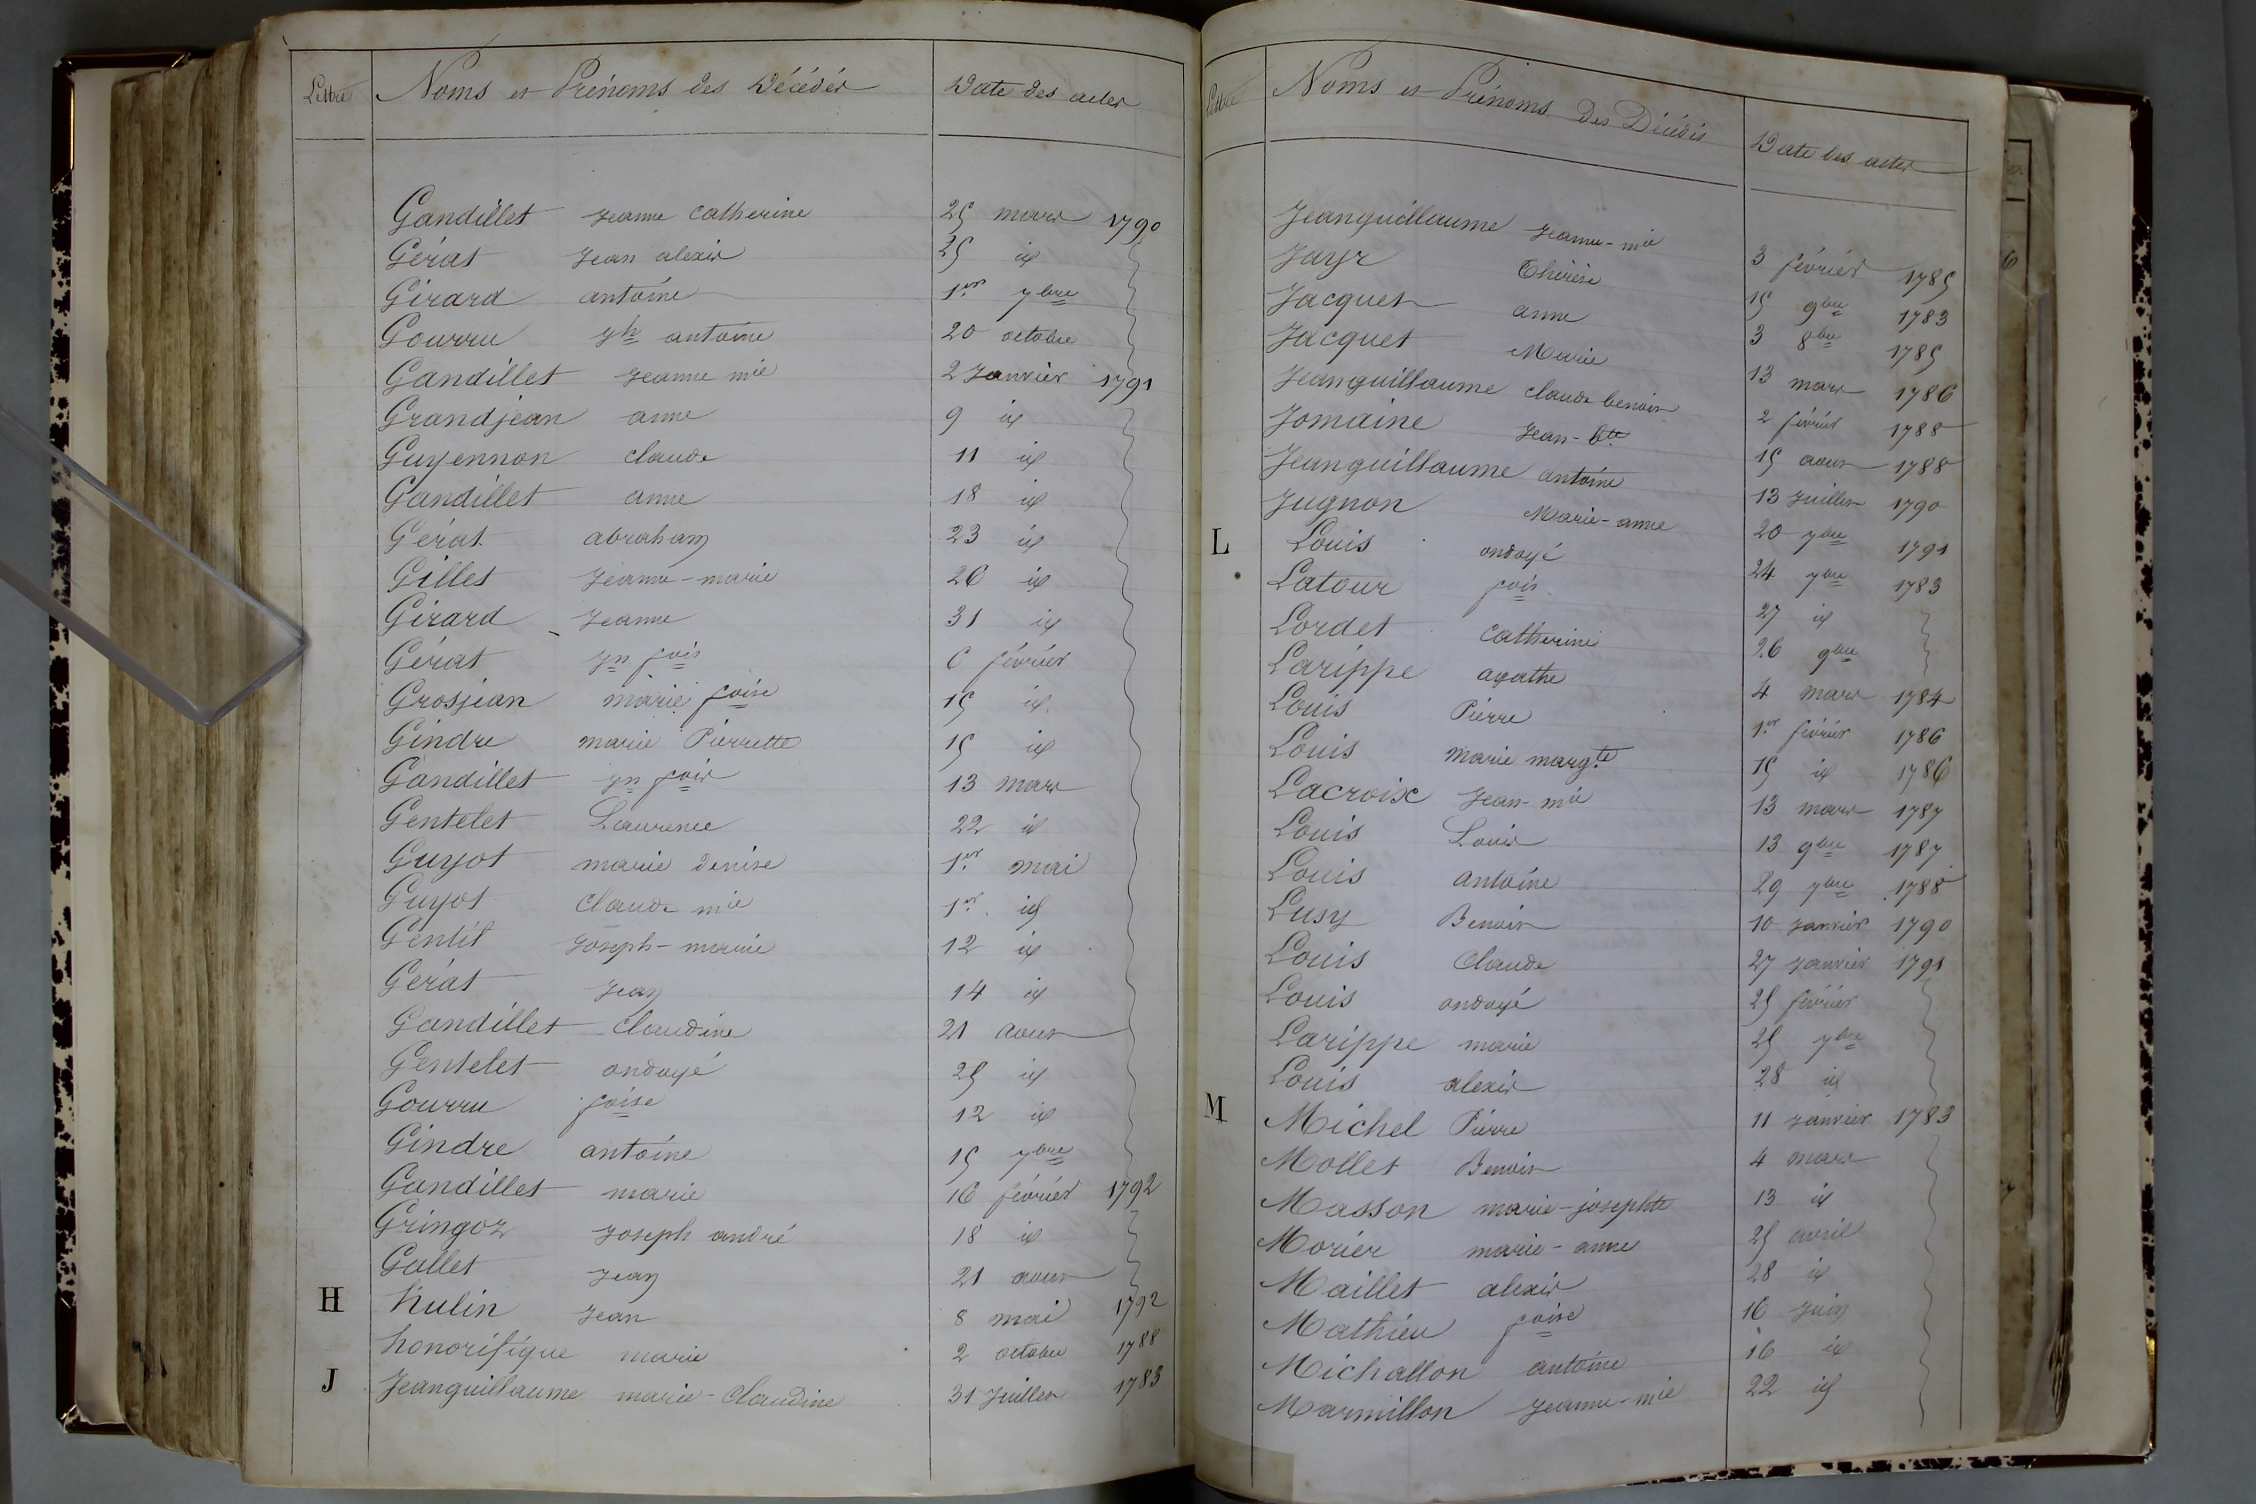 Lettre Noms et Prénoms des Décédés Date des actes
Gandillet Jeanne Catherine 25 mars 1790
Gérat Jean alexis 25 id
Girard antoine 1er 7bre
Gourru jh antoine 20 octobre
Gandillet Jeanne mie 2 Janvier 1791
Grandjean anne 9 id
Guyennon claude 11 id
Gandillet anne 18 id
Gérat abraham 23 id
Gillet Jeanne-marie 26 id
Girard Jeanne 31 id
Gérat jn fois 6 février
Grosjean marie foise 15 id
Gindre marie Pierrette 15 id
Gandillet jn fois 13 mars
Gentelet Laurence 22 id
Guyot marie denise 1er mai
Guyot Claude mie 1er id
Gentit Joseph-marie 12 id
Gerat Jean 14 id
Gandillet Claudine 21 aout
Gentelet ondoyé 25 id
Gourru foise 12 id
Gindre antoine 15 7bre
Gandillet marie 16 février 1792
Gringoz Joseph andré 18 id
Gallet Jean 21 aout
H hulin Jean 8 mai 1792
honorifique marie 2 octobre 1788
J Jeanguillaume marie-Claudine 31 Juillet 1783
Lettre Noms et Prénoms des Décédés Date des actes
Jeanguillaume Jeanne-mie 3 février 1785
Jayr Thérèse 15 9bre 1783
Jacquet anne 3 8bre 1785
Jacquet Marie 13 mars 1786
Jeanguillaume claude benoit 2 février 1788
Jomaine Jean-bte 15 aout 1788
Jeanguillaume antoine 13 Juillet 1790
Jugnon Marie-anne 20 7bre 1791
L Louis ondoyé 24 7bre 1783
Latour fois 27 id
Lordet Catherine 26 9bre
Larippe agathe 4 mars 1784
Louis Pierre 1er février 1786
Louis marie margte 15 id 1786
Lacroix Jean-mie 13 mars 1787
Louis Louis 13 9bre 1787
Louis antoine 29 7bre 1788
Lusy Benoit 10 Janvier 1790
Louis Claude 27 Janvier 1791
Louis ondoyé 25 février
Larippe marie 25 7bre
Louis alexis 28 id
M Michel Pierre 11 Janvier 1783
Mollet Benoit 4 mars
Masson marie-josephte 13 id
Morier marie-anne 25 avril
Maillet alexis 28 id
Mathieu foise 16 Juin
Michallon antoine 16 id
Marmillon Jeanne-mie 22 id